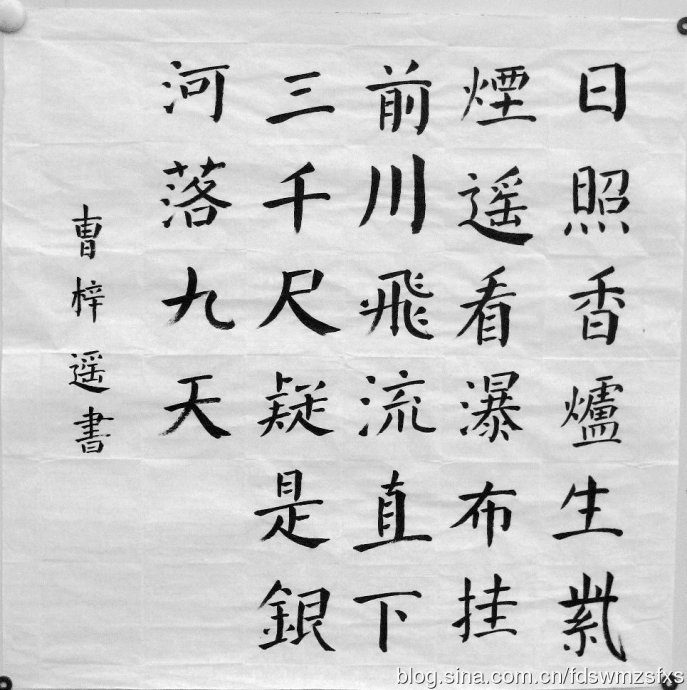 日照香爐生紫
煙遥看瀑布挂
前川飛流直下
三千尺疑是銀
河落九天
曹梓遥書
blog.sina.com.cn/fdswmzsfxs